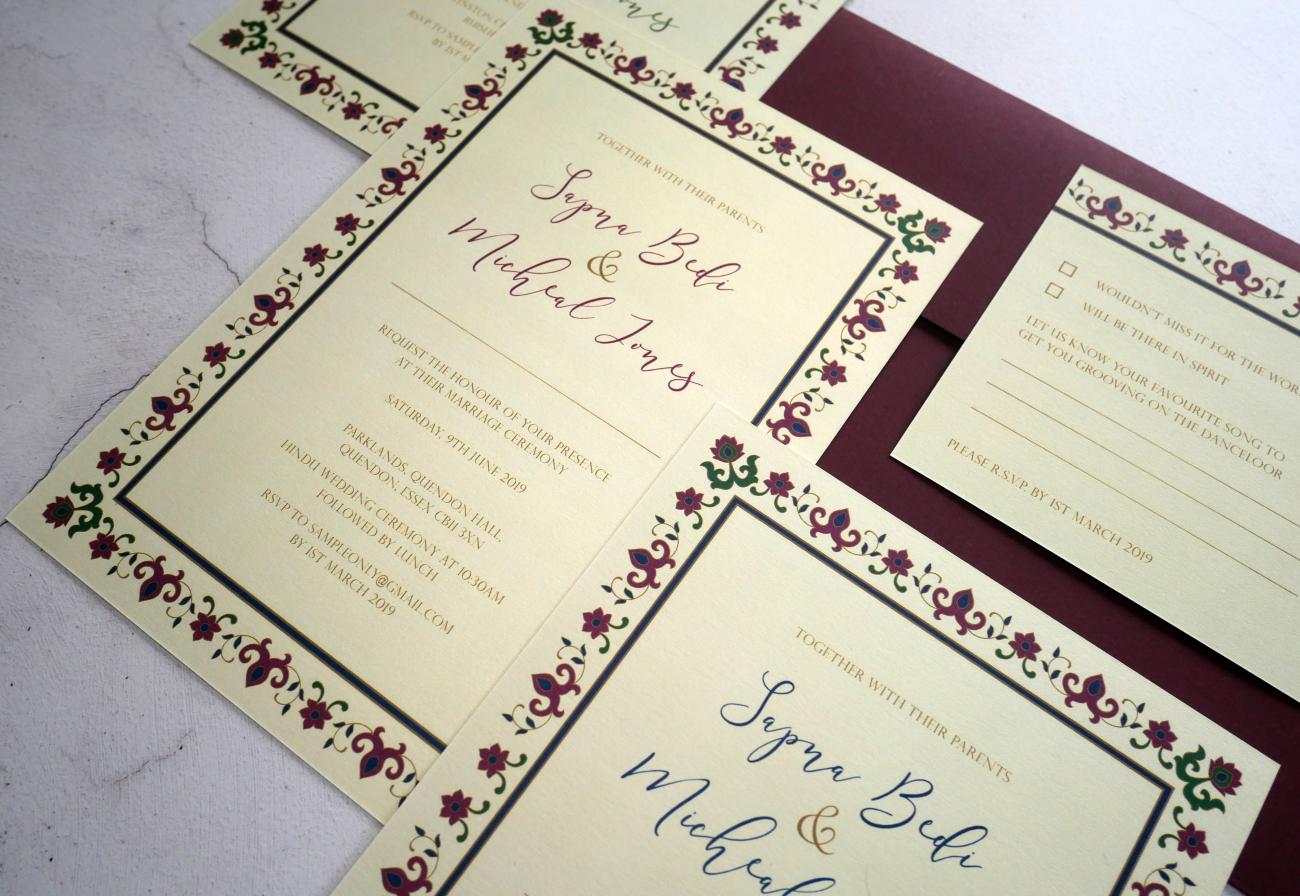 RSVP TO SAMPL
BY 1ST M
Jones
TOGETHER WITH THEIR PARENTS
Sapna Bedi
&
Micheal Jones
REQUEST THE HONOUR OF YOUR PRESENCE
AT THEIR MARRIAGE CEREMONY
SATURDAY, 9TH JUNE 2019
PARKLANDS, QUENDON HALL,
QUENDON, ESSEX CB11 3XN
HINDU WEDDING CEREMONY AT 10:30AM
FOLLOWED BY LUNCH
RSVP TO SAMPLEONLY@GMAIL.COM
BY 1ST MARCH 2019
WOULDN'T MISS IT FOR THE WOR
WILL BE THERE IN SPIRIT
LET US KNOW YOUR FAVOURITE SONG TO
GET YOU GROOVING ON THE DANCELOOR
PLEASE R.S.V.P. BY 1ST MARCH 2019
TOGETHER WITH THEIR PARENTS
Sapna Bedi
&
Micheal